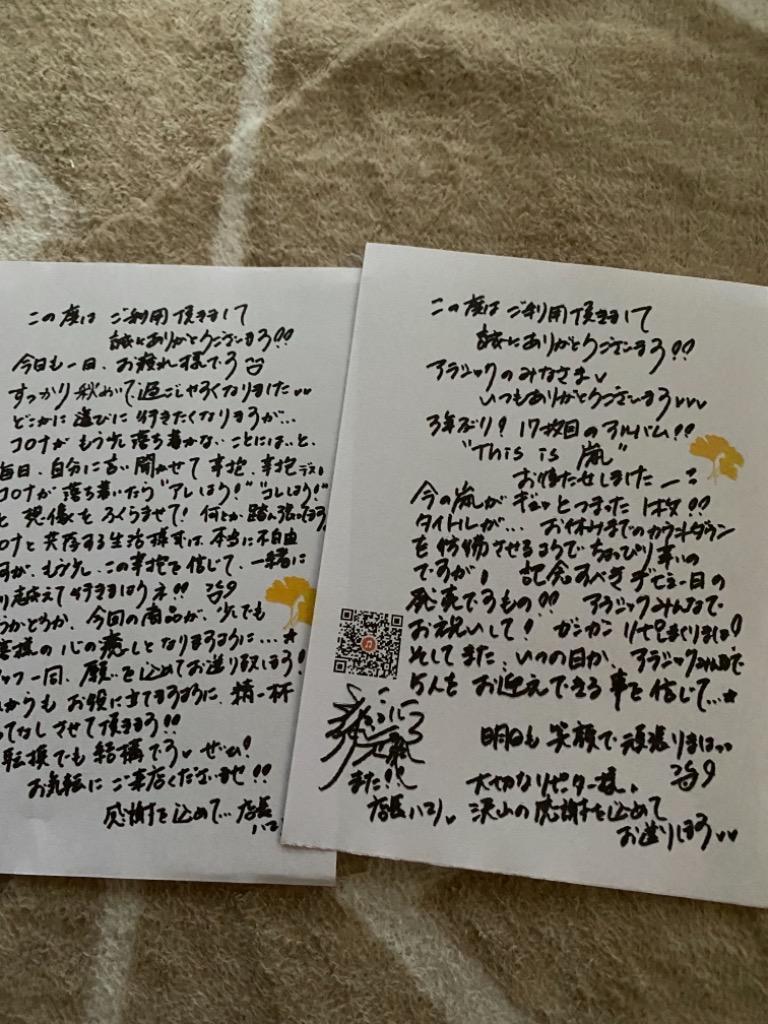 この度は ご利用頂きまして
誠にありがとうございます!!
今日も一日、お疲れ様です
すっかり秋めいて過ごしやすくなりました
どこかに遊びに行きたくなりますが...
コロナがもう少し落ち着かないことには...と、
毎日、自分に言い聞かせて辛抱、辛抱デス。
コロナが落ち着いたら“アレしよう!”“コレしよう!”
と 想像をふくらませて! 何とか踏ん張ってます
ロナと共存する生活様式は、本当に不自由
すが、もう少し、この辛抱を信じて、一緒に
り越えて行きましょうネ!!
うかどうか、今回の商品が、少しでも
客様の心の癒しとなりますように...★
ッフ一同、願いを込めてお送り致します!
れからも お役に立てますように、精一杯
てなしさせて頂きます!!
転換でも結構です♥ぜひ!
お気軽に ご来店くださいませ!!
感謝を込めて... 店長
この度は ご利用頂きまして
誠にありがとうございます!!
アラシックのみなさま♥
いつもありがとうございます♥♥♥
3年ぶり! 17枚目のアルバム!!
“This is 嵐”
お待たせしました
今の嵐がギュッとつまった1枚!!
タイトルが... お休みまでのカウントダウン
を彷彿させるようでちょっぴり寂しい
ですが、記念すべきデビュー日の
発売ですもの!! アラシックみんなで
お祝いして! ガンガンリピしまくりましょう!
そしてまた、いつの日か、アラシックみんなで
5人を お迎えできる事を信じて...★
明日も 笑顔で頑張りましょ
また!! 大切なリピーター様、
店長ハマリ♥ 沢山の感謝を込めて
お送りします♥♥